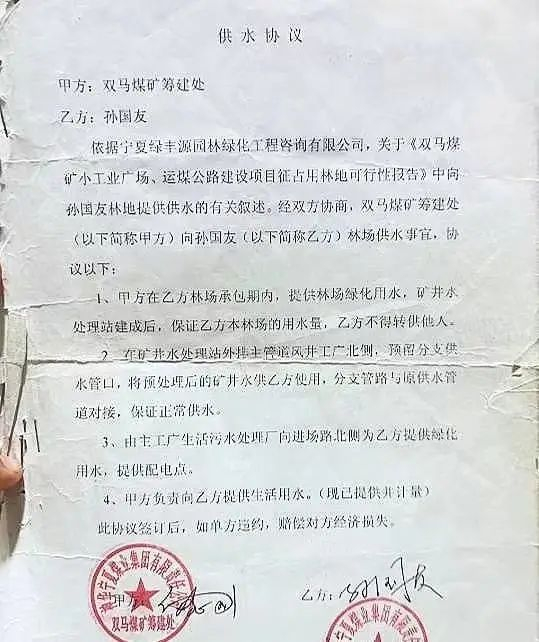 供水协议
甲方：双马煤矿筹建处
乙方：孙国友
依据宁夏绿丰源园林绿化工程咨询有限公司，关于《双马煤
矿小工业广场、运煤公路建设项目征占用林地可行性报告》中向
孙国友林地提供供水的有关叙述。经双方协商，双马煤矿筹建处
（以下简称甲方）向孙国友（以下简称乙方）林场供水事宜，协
议以下：
1、甲方在乙方林场承包期内，提供林场绿化用水，矿井水
处理站建成后，保证乙方本林场的用水量，乙方不得转供他人。
2、在矿井水处理站外排主管道风井工广北侧，预留分支供
水管口，将预处理后的矿井水供乙方使用，分支管路与原供水管
道对接，保证正常供水。
3、由主工广生活污水处理厂向进场路北侧为乙方提供绿化
用水，提供配电点。
4、甲方负责向乙方提供生活用水。（现已提供并计量）
此协议签订后，如单方违约，赔偿对方经济损失。
甲方：
乙方：孙国友
宁夏煤业集团有限责任公
双马煤矿筹建处